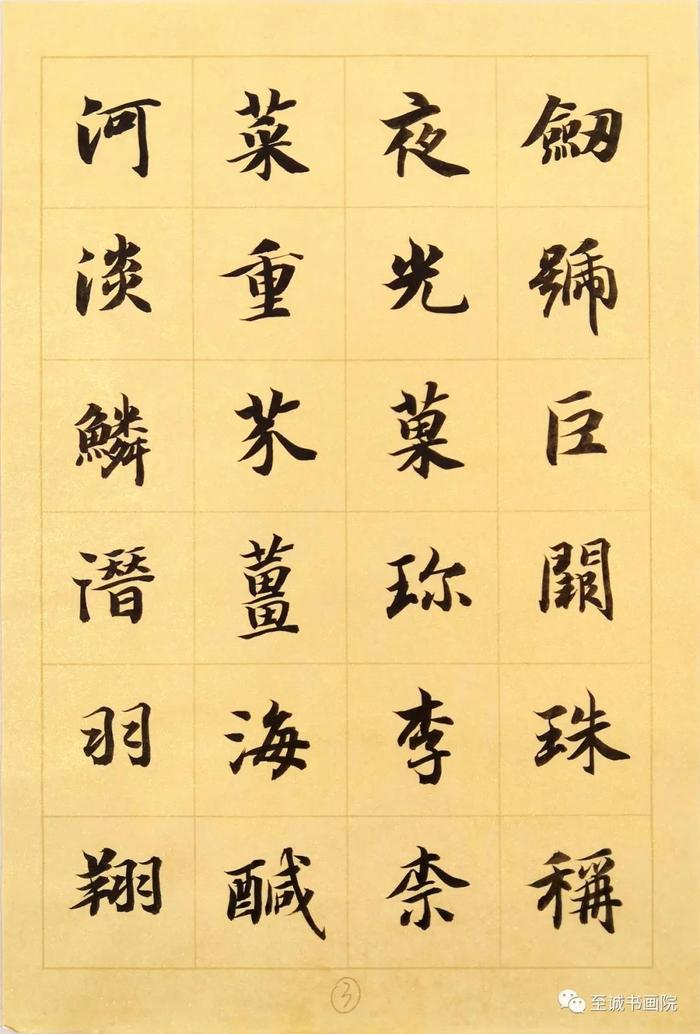 劒號巨闕珠稱
夜光菓珎李柰
菜重芥薑海醎
河淡鱗潛羽翔
3
至诚书画院